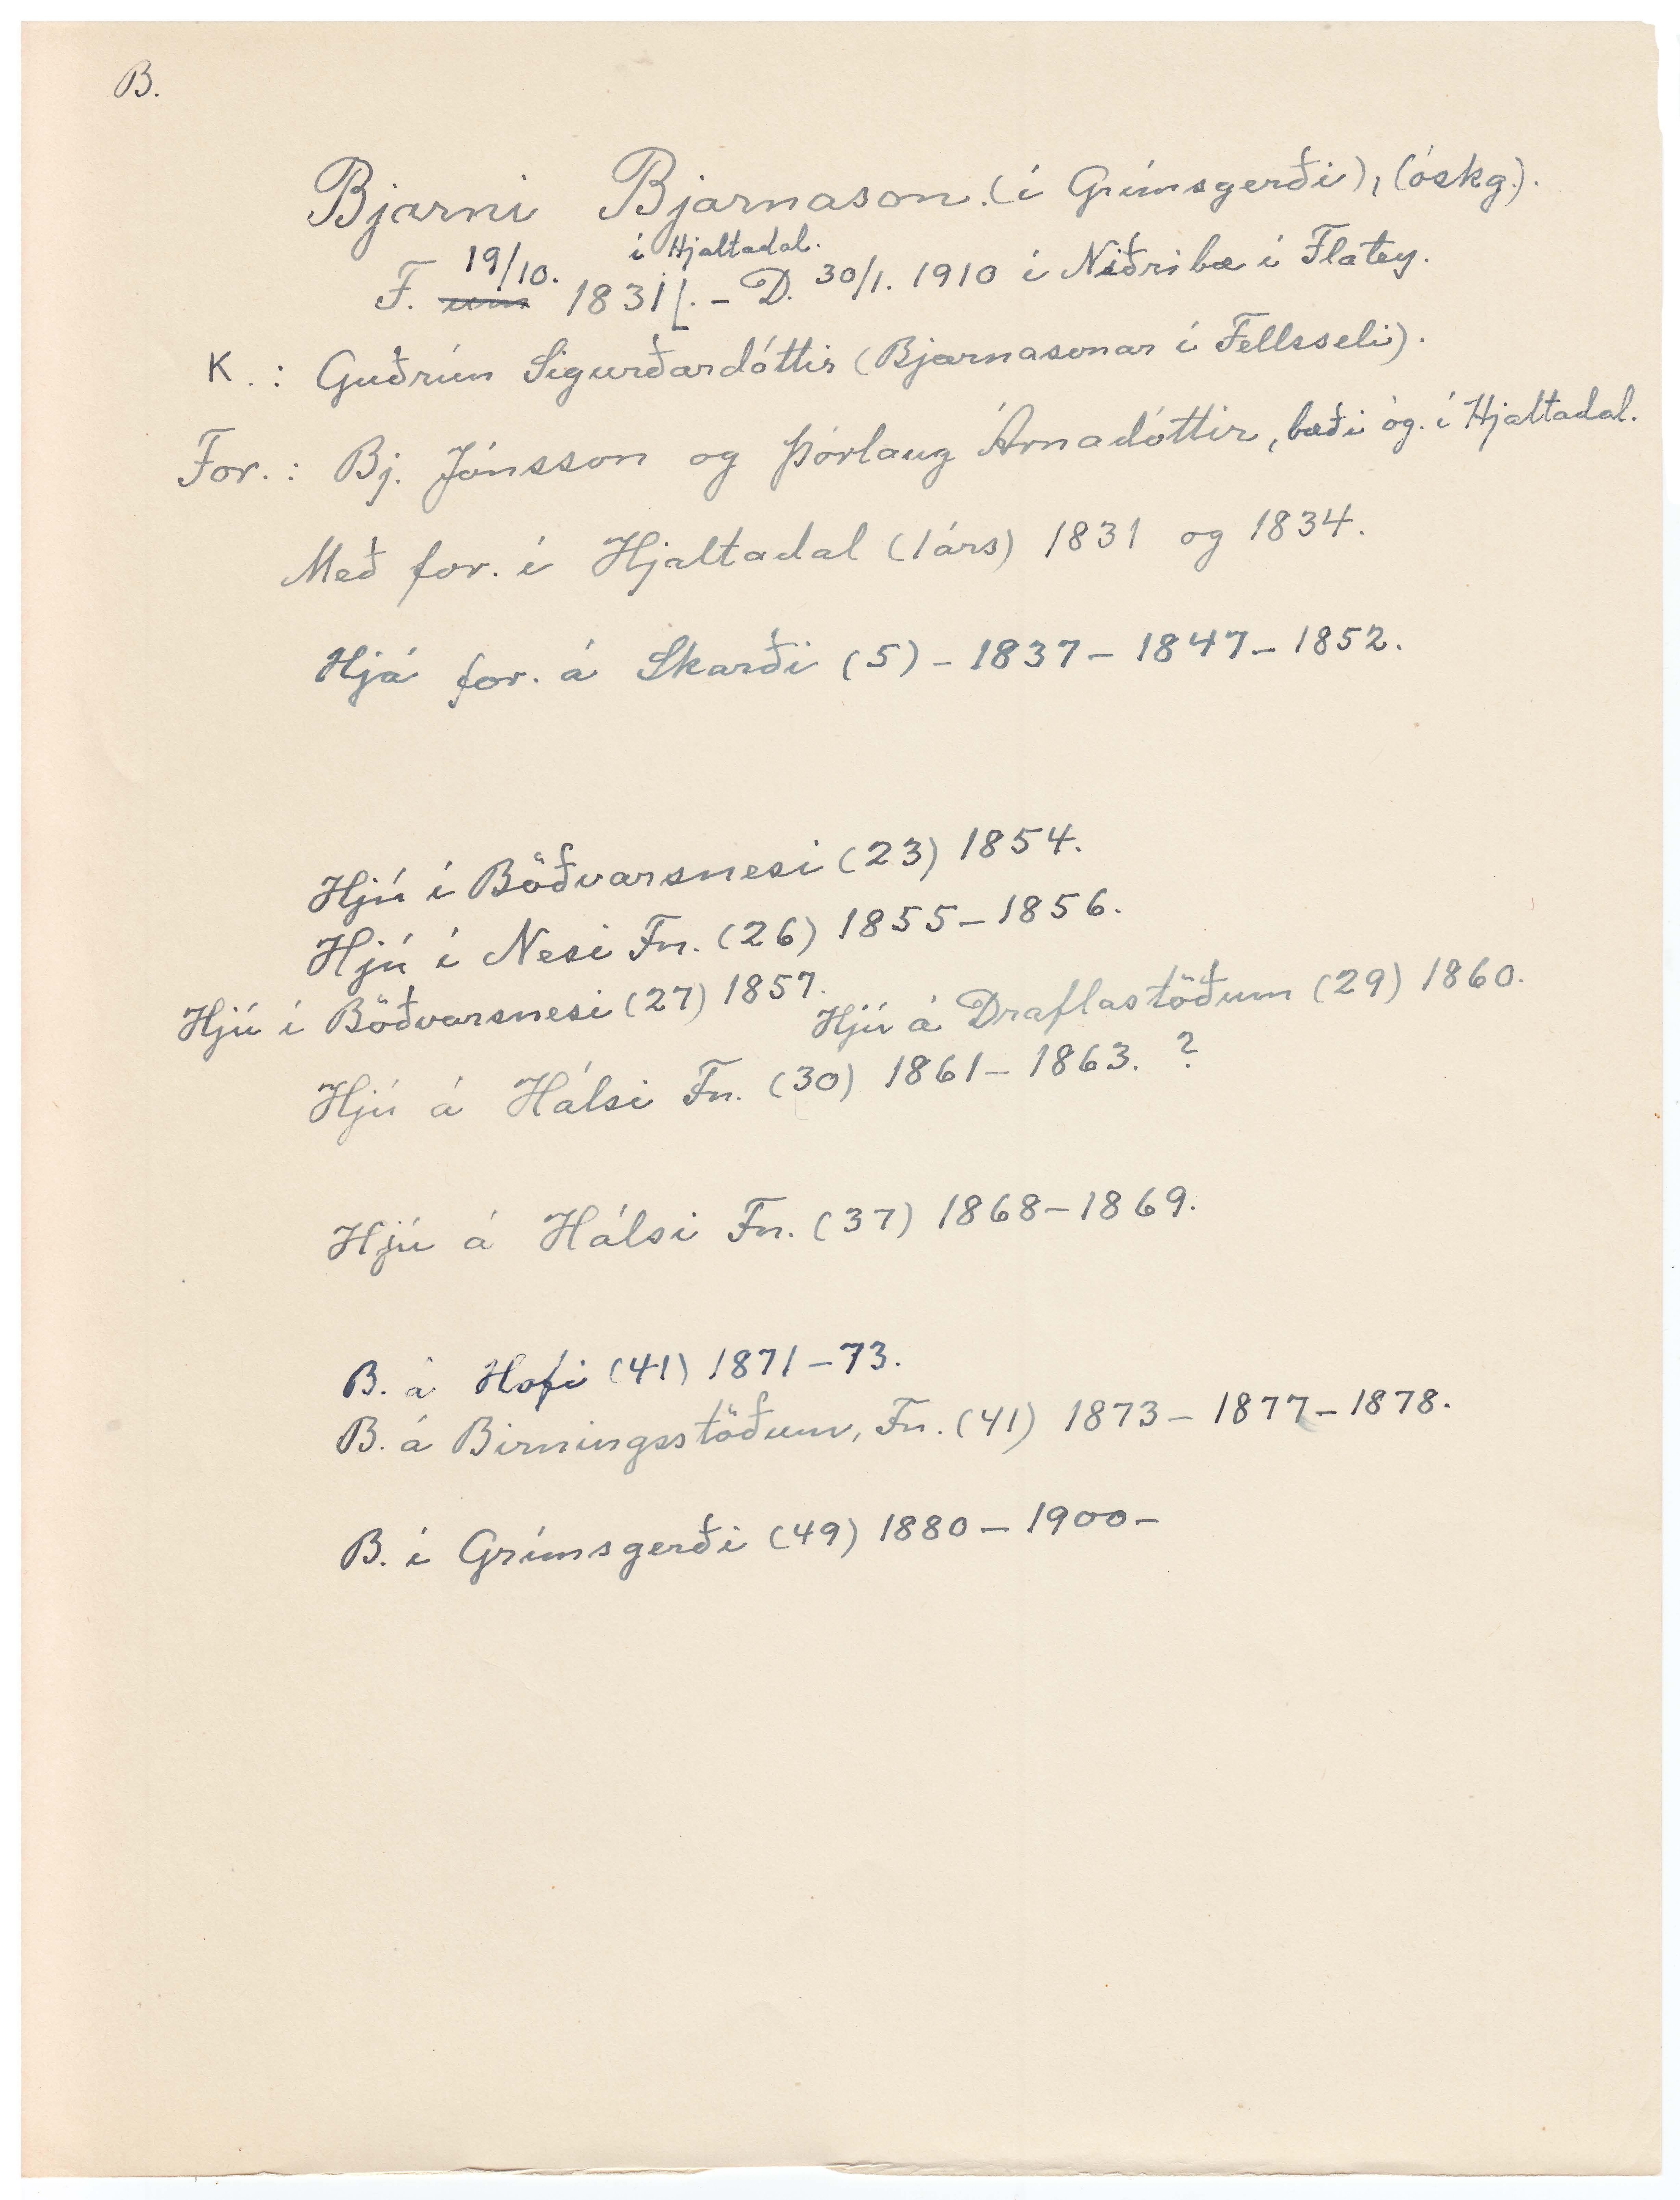 B.
Bjarni Bjarnason. (í Grímsgerði), (óskg.).
19/10. í Hjaltadal.
F. um 1831. - D. 30/1. 1910 í Niðribæ í Flatey.
K.: Guðrún Sigurðardóttir (Bjarnasonar í Fellsseli).
For.: Bj. Jónsson og Þórlaug Árnadóttir, bæði óg. í Hjaltadal.
Með for. í Hjaltadal (1árs) 1831 og 1834.
Hjá for. á Skarði (5) - 1837 - 1847 - 1852.
Hjú í Böðvarsnesi (23) 1854.
Hjú í Nesi Fn. (26) 1855 - 1856.
Hjú í Böðvarsnesi (27) 1857. Hjú á Draflastöðum (29) 1860.
Hjú á Hálsi Fn. (30) 1861 - 1863. ?
Hjú á Hálsi Fn. (37) 1868 - 1869.
B. á Hofi (41) 1871 - 73.
B. á Birningsstöðum, Fn. (41) 1873 - 1877 - 1878.
B. í Grímsgerði (49) 1880 - 1900 -